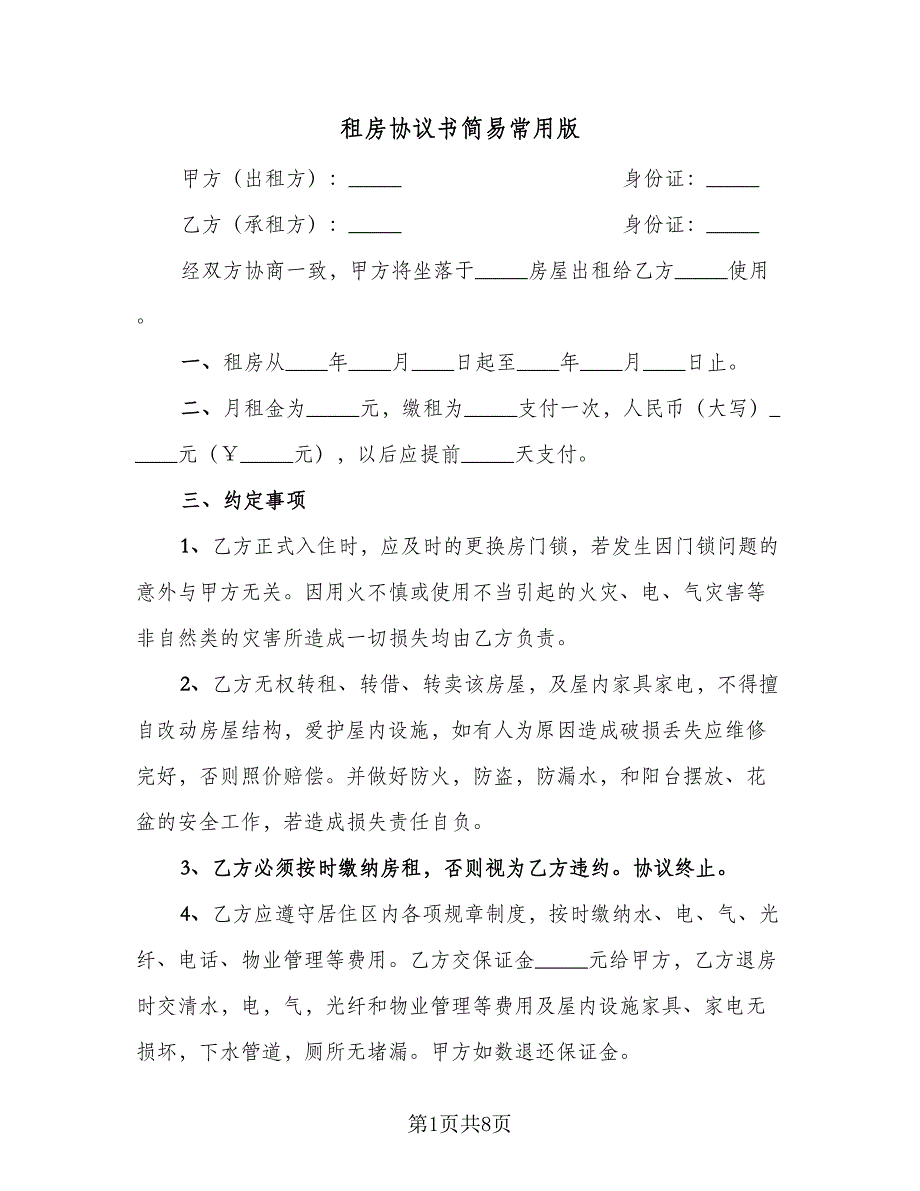 租房协议书简易常用版
甲方（出租方）：_____ 身份证：_____
乙方（承租方）：_____ 身份证：_____
经双方协商一致，甲方将坐落于_____房屋出租给乙方_____使用
。
一、租房从____年____月____日起至____年____月____日止。
二、月租金为_____元，缴租为_____支付一次，人民币（大写）_
____元（￥_____元），以后应提前_____天支付。
三、约定事项
1、乙方正式入住时，应及时的更换房门锁，若发生因门锁问题的
意外与甲方无关。因用火不慎或使用不当引起的火灾、电、气灾害等
非自然类的灾害所造成一切损失均由乙方负责。
2、乙方无权转租、转借、转卖该房屋，及屋内家具家电，不得擅
自改动房屋结构，爱护屋内设施，如有人为原因造成破损丢失应维修
完好，否则照价赔偿。并做好防火，防盗，防漏水，和阳台摆放、花
盆的安全工作，若造成损失责任自负。
3、乙方必须按时缴纳房租，否则视为乙方违约。协议终止。
4、乙方应遵守居住区内各项规章制度，按时缴纳水、电、气、光
纤、电话、物业管理等费用。乙方交保证金_____元给甲方，乙方退房
时交清水，电，气，光纤和物业管理等费用及屋内设施家具、家电无
损坏，下水管道，厕所无堵漏。甲方如数退还保证金。
第1页共8页